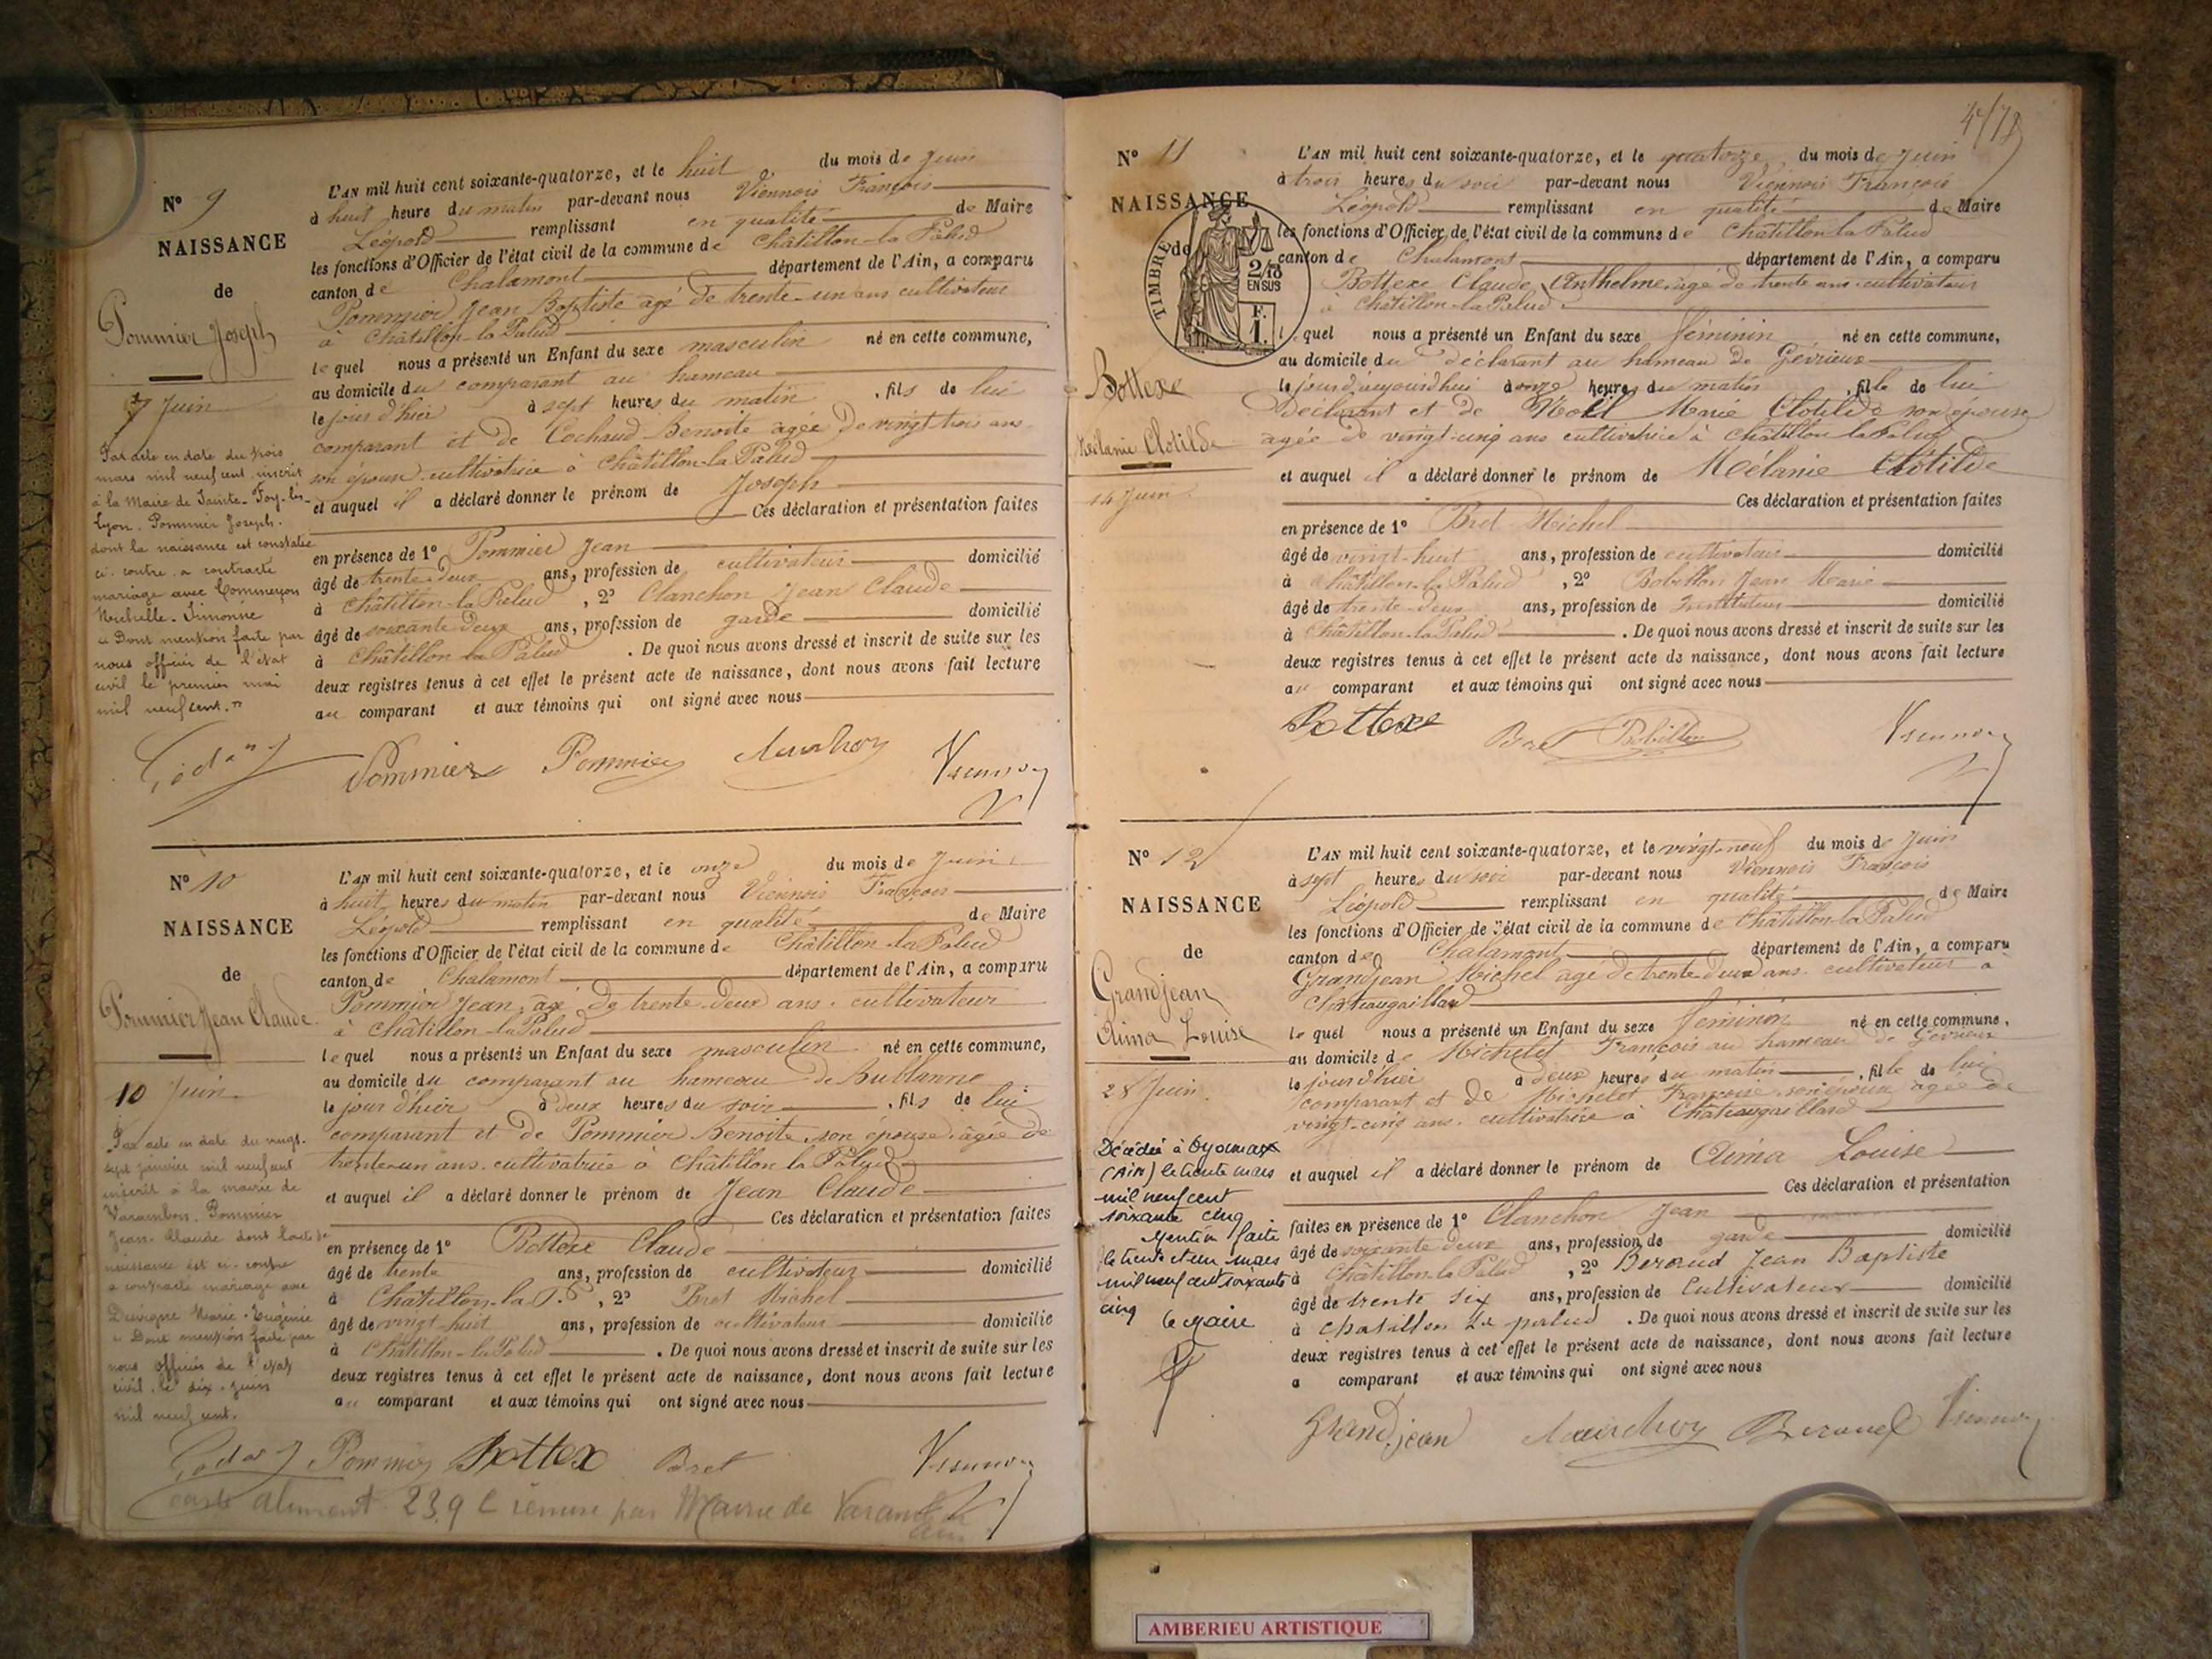 N° 9
NAISSANCE
de
Pommier Joseph
7 Juin
Par acte en date du trois
mars mil neuf cent, inscrit
à la Mairie de Sainte-Foy-lès-
Lyon, Pommier Joseph,
dont la naissance est constatée
ci-contre a contracté
mariage avec Commerçon
Michelle-Simonne
" Dont mention faite par
nous officier de l'état
civil le premier mai
mil neuf cent. "
L'AN mil huit cent soixante-quatorze, et le huit du mois de Juin
à huit heure du matin par-devant nous Viennois François
Léopold remplissant en qualité de Maire
les fonctions d'Officier de l'état civil de la commune de Châtillon-la-Palud
canton de Chalamont département de l'Ain, a comparu
Pommier Jean Baptiste agé de trente-un ans cultivateur
à Châtillon-la-Palud
le quel nous a présenté un Enfant du sexe masculin né en cette commune,
au domicile du comparant au hameau
le jour d'hier à sept heures du matin, fils de lui
comparant et de Cochaud Benoite agée de vingt trois ans
son épouse cultivatrice à Châtillon-la-Palud
et auquel il a déclaré donner le prénom de Joseph
Ces déclaration et présentation faites
en présence de 1° Pommier Jean
âgé de trente-deux ans, profession de cultivateur domicilié
à Châtillon-la-Palud, 2° Clanchon Jean Claude
âgé de soixante deux ans, profession de garde domicilié
à Châtillon la Palud. De quoi nous avons dressé et inscrit de suite sur les
deux registres tenus à cet effet le présent acte de naissance, dont nous avons fait lecture
au comparant et aux témoins qui ont signé avec nous
Pommier Pommier
N° 10
NAISSANCE
de
Pommier Jean Claude
10 Juin
Par acte en date du vingt-
sept janvier mil neuf cent
inscrit à la mairie de
Varambon, Pommier
Jean-Claude dont l'acte de
naissance est ci-contre
a contracté mariage avec
Marie-Eugénie
" Dont mention faite par
nous officier de l'état
civil, le dix juin
mil neuf cent.
L'AN mil huit cent soixante-quatorze, et le onze du mois de Juin
à huit heures du matin par-devant nous Viennois François
Léopold remplissant en qualité de Maire
les fonctions d'Officier de l'état civil de la commune de Châtillon-la-Palud
canton de Chalamont département de l'Ain, a comparu
Pommier Jean, agé de trente-deux ans, cultivateur
à Châtillon-la-Palud
le quel nous a présenté un Enfant du sexe masculin né en cette commune,
au domicile du comparant au hameau de Bublanne
le jour d'hier à deux heures du soir, fils de lui
comparant et de Pommier Benoite, son épouse, âgée de
trente-un ans, cultivatrice à Châtillon la Palud
et auquel il a déclaré donner le prénom de Jean Claude
Ces déclaration et présentation faites
en présence de 1° Bottexe Claude
âgé de trente ans, profession de cultivateur domicilié
à Châtillon-la-P., 2° Bret Michel
âgé de vingt-huit ans, profession de cultivateur domicilié
à Châtillon-la-Palud. De quoi nous avons dressé et inscrit de suite sur les
deux registres tenus à cet effet le présent acte de naissance, dont nous avons fait lecture
au comparant et aux témoins qui ont signé avec nous
Pommier Bottex Bret
carte aliment. par Mairie de
4/78
N° 11
NAISSANCE
de
TIMBRE
2/10
EN SUS
F.
1.
Bottexe
Mélanie Clotilde
14 Juin
L'AN mil huit cent soixante-quatorze, et le quatorze du mois de Juin
à trois heures du soir par-devant nous Viennois François
Léopold remplissant en qualité de Maire
les fonctions d'Officier de l'état civil de la commune de Châtillon la Palud
canton de Chalamont département de l'Ain, a comparu
Bottexe Claude Anthelme agé de trente ans cultivateur
à Châtillon-la-Palud
le quel nous a présenté un Enfant du sexe féminin né en cette commune,
au domicile du déclarant au hameau de Gévrieux
le jour d'aujourd'hui à onze heures du matin, fille de lui
déclarant et de Noël Marie Clotilde son épouse
agée de vingt-cinq ans cultivatrice à Châtillon la Palud
et auquel il a déclaré donner le prénom de Mélanie Clotilde
Ces déclaration et présentation faites
en présence de 1° Bret Michel
âgé de vingt-huit ans, profession de cultivateur domicilié
à Châtillon-la-Palud, 2° Bobillon Jean Marie
âgé de trente-deux ans, profession de Instituteur domicilié
à Châtillon-la-Palud. De quoi nous avons dressé et inscrit de suite sur les
deux registres tenus à cet effet le présent acte de naissance, dont nous avons fait lecture
au comparant et aux témoins qui ont signé avec nous
Bottexe Bret Bobillon
N° 12
NAISSANCE
de
Grandjean
Aima Louise
28 Juin
Décédée à Oyonnax
(Ain) le trente mars
mil neuf cent
soixante cinq
Mention faite
le trente et un mars
mil neuf cent soixante
cinq Le Maire
L'AN mil huit cent soixante-quatorze, et le vingt-neuf du mois de Juin
à sept heures du soir par-devant nous Viennois François
Léopold remplissant en qualité de Maire
les fonctions d'Officier de l'état civil de la commune de Châtillon-la-Palud
canton de Chalamont département de l'Ain, a comparu
Grandjean Michel agé de trente-deux ans, cultivateur à
Châteaugaillard
le quel nous a présenté un Enfant du sexe féminin né en cette commune,
au domicile de Michelet François au hameau de Gévrieux
le jour d'hier à deux heures du matin, fille de lui
comparant et de Michelet Françoise son épouse agée de
vingt-cinq ans, cultivatrice à Châteaugaillard
et auquel il a déclaré donner le prénom de Aima Louise
Ces déclaration et présentation
faites en présence de 1° Clanchon Jean
âgé de soixante deux ans, profession de garde domicilié
à Châtillon-la-Palud, 2° Beraud Jean Baptiste
âgé de trente six ans, profession de Cultivateur domicilié
à Chatillon La palud. De quoi nous avons dressé et inscrit de suite sur les
deux registres tenus à cet effet le présent acte de naissance, dont nous avons fait lecture
a comparant et aux témoins qui ont signé avec nous
Grandjean Beraud
AMBERIEU ARTISTIQUE